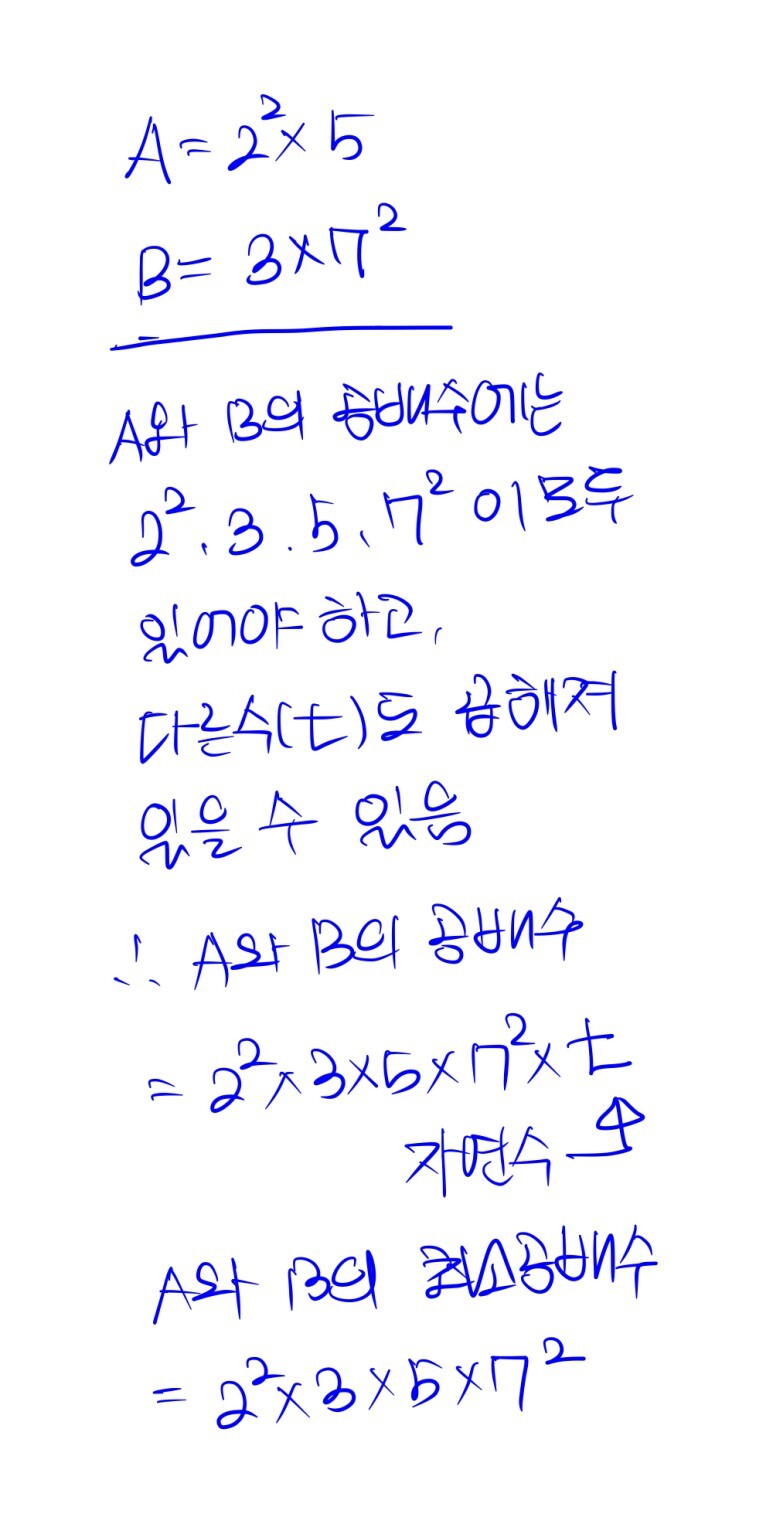 A = 2² × 5
B = 3 × 7²
A와 B의 공배수에는
2², 3, 5, 7² 이 모두
있어야 하고,
다른수(t)도 곱해져
있을 수 있음
∴ A와 B의 공배수
= 2² × 3 × 5 × 7² × t
자연수
A와 B의 최소공배수
= 2² × 3 × 5 × 7²